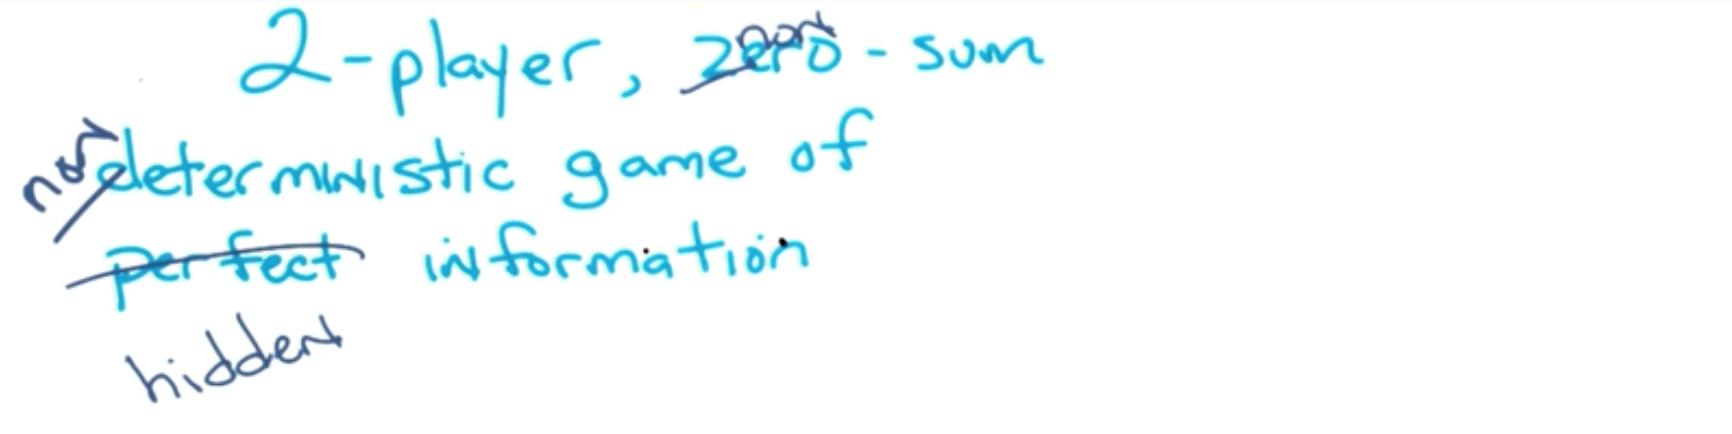 2-player, non zero-sum
non deterministic game of
perfect information
hidden